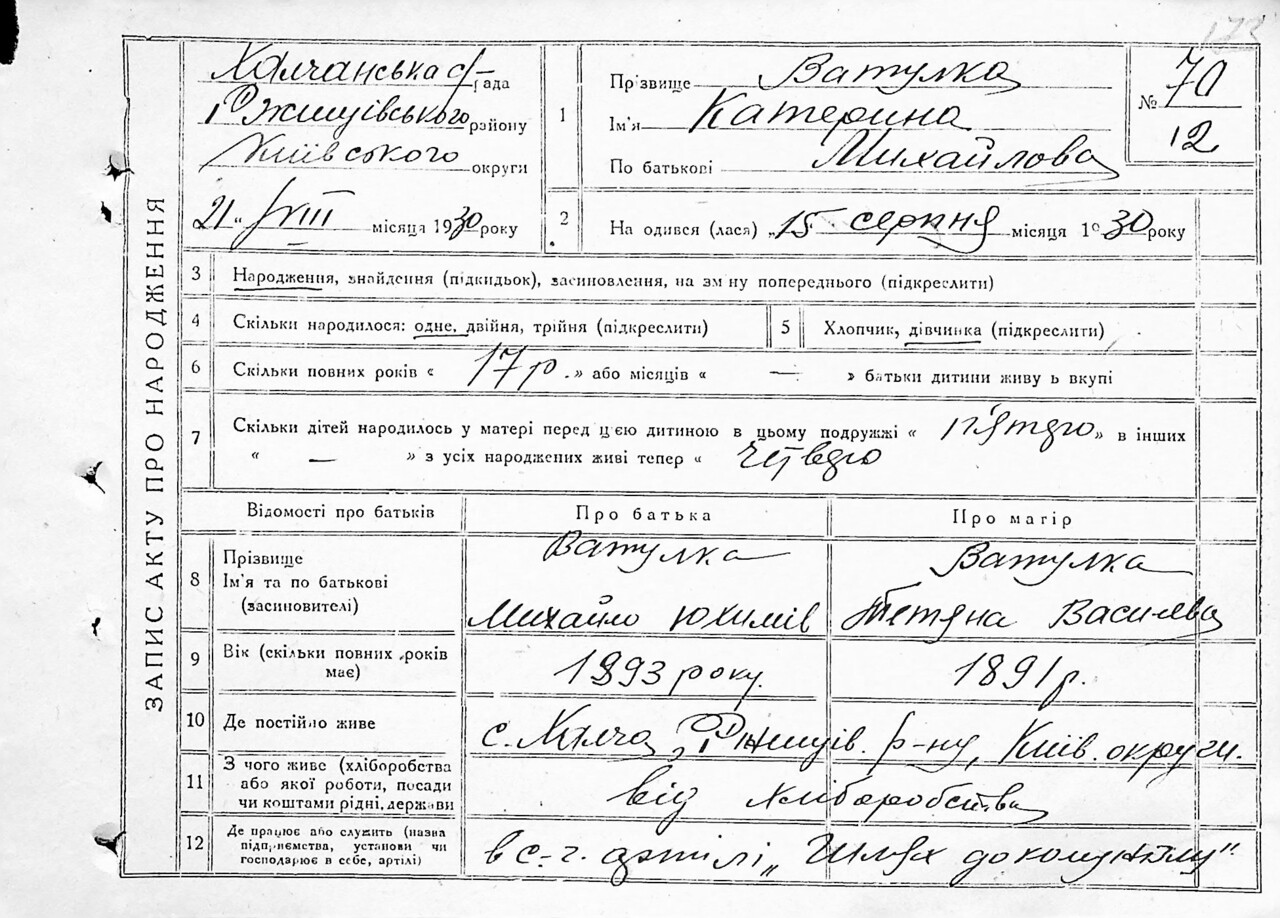 173
ЗАПИС АКТУ ПРО НАРОДЖЕННЯ
Халчанська с/рада
Ржищівського району
Київського округи
21 „ VIII місяця 1930 року
1
Прізвище Ватулка
Ім'я Катерина
По батькові Михайлова
№ 70
12
2
На одився (лася) „ 15 серпня місяця 1930 року
3 Народження, знайдення (підкидьок), засиновлення, на зм ну попереднього (підкреслити)
4 Скільки народилося: одне, двійня, трійня (підкреслити)
5 Хлопчик, дівчинка (підкреслити)
6 Скільки повних років « 17 р. » або місяців « — » батьки дитини живу ь вкупі
7 Скільки дітей народилось у матері перед цією дитиною в цьому подружжі « п'ятеро » в інших
« — » з усіх народжених живі тепер « четверо
Відомості про батьків
Про батька
Про матір
8 Прізвище
Ім'я та по батькові
(засиновителі)
Ватулка
Михайло Юхимів
Ватулка
Тетяна Василева
9 Вік (скільки повних років
має)
1893 року.
1891 р.
10 Де постійно живе
с. Халча, Ржищів. р-ну, Київ. округи.
11 З чого живе (хліборобства
або якої роботи, посади
чи коштами рідні, держави
від хліборобства
12 Де працює або служить (назва
підприємства, установи чи
господарює в себе, артілі)
в с.-г. артілі „Шлях до комунізму".